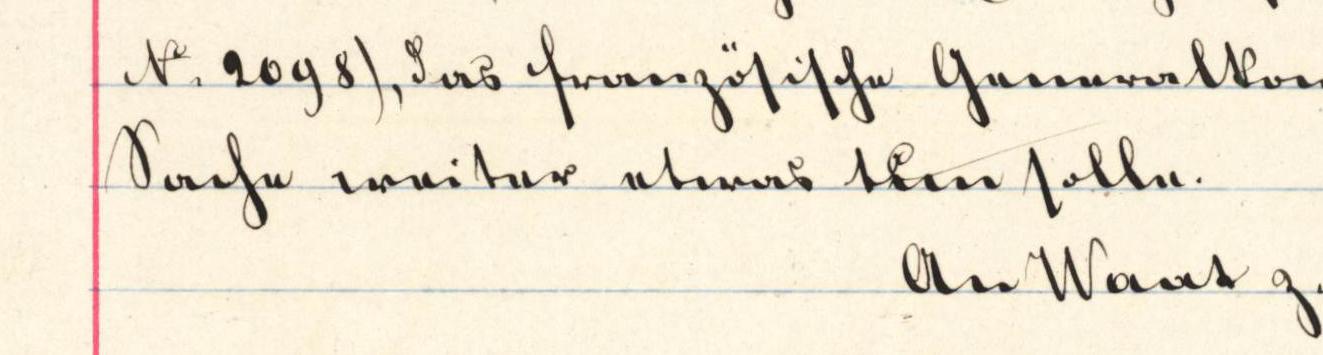 N. 2098), das französische Generalkon
Sache weiter etwas tun solle.
An Waat z.